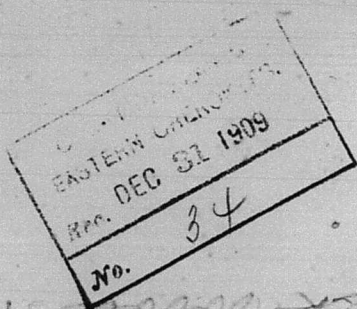 EASTERN CHEROKEES.
Rec. DEC 31 1909
No. 34